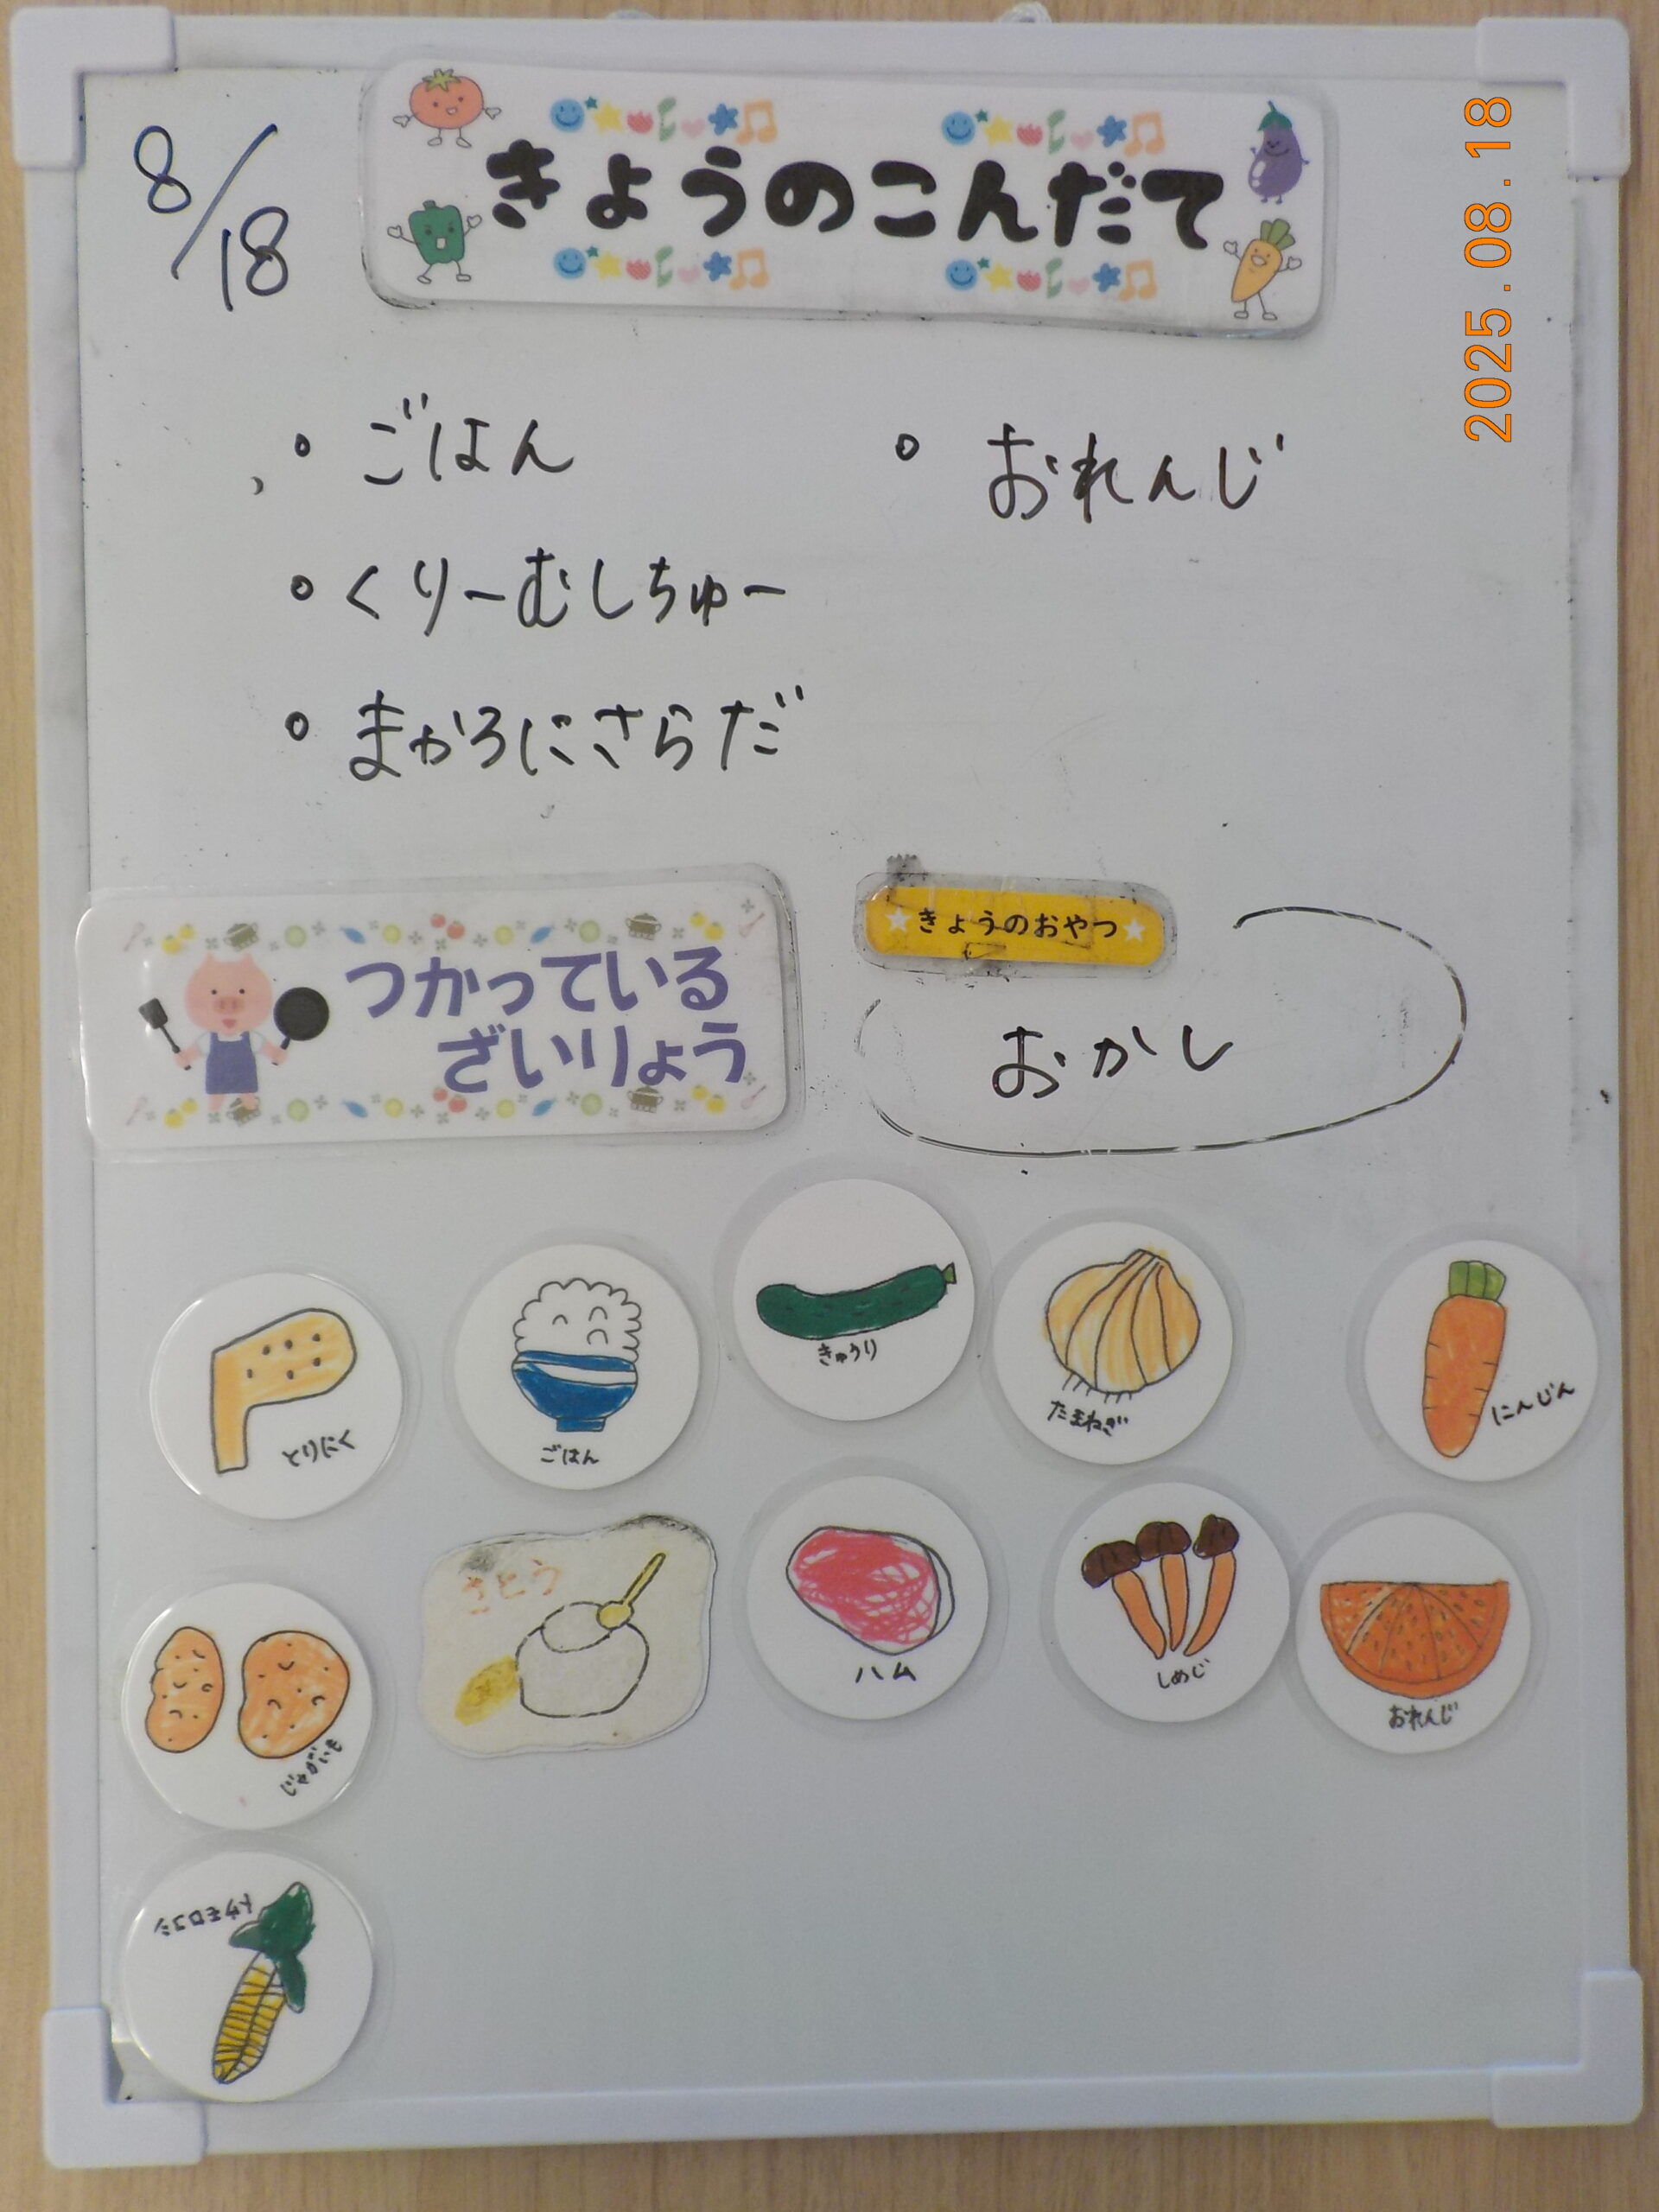 8/18
きょうのこんだて
2025.08.18
・ごはん
・くりーむしちゅー
・まかろにさらだ
・おれんじ
つかっている
ざいりょう
★きょうのおやつ★
おかし
とりにく
ごはん
きゅうり
たまねぎ
にんじん
じゃがいも
さとう
ハム
しめじ
おれんじ